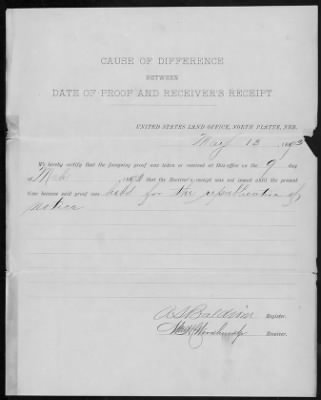 CAUSE OF DIFFERENCE
BETWEEN
DATE OF PROOF AND RECEIVER'S RECEIPT
UNITED STATES LAND OFFICE, NORTH PLATTE, NEB.
May 13 1893
We hereby certify that the foregoing proof was taken or received at this office on the 9 day
of Mch 1893 that the Receiver's receipt was not issued until the present
time because said proof was held for the republication of
notice
A S Baldwin Register.
Receiver.